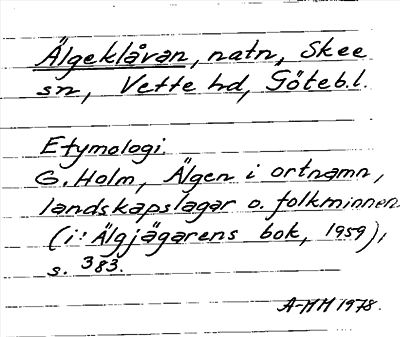 Älgeklåvan, natn, Skee
sn, Vette hd, Göteb.l.
Etymologi.
G. Holm, Älgen i ortnamn,
landskapslagar o. folkminnen
(i: Älgjägarens bok, 1959),
s. 383.
A-MM 1978.